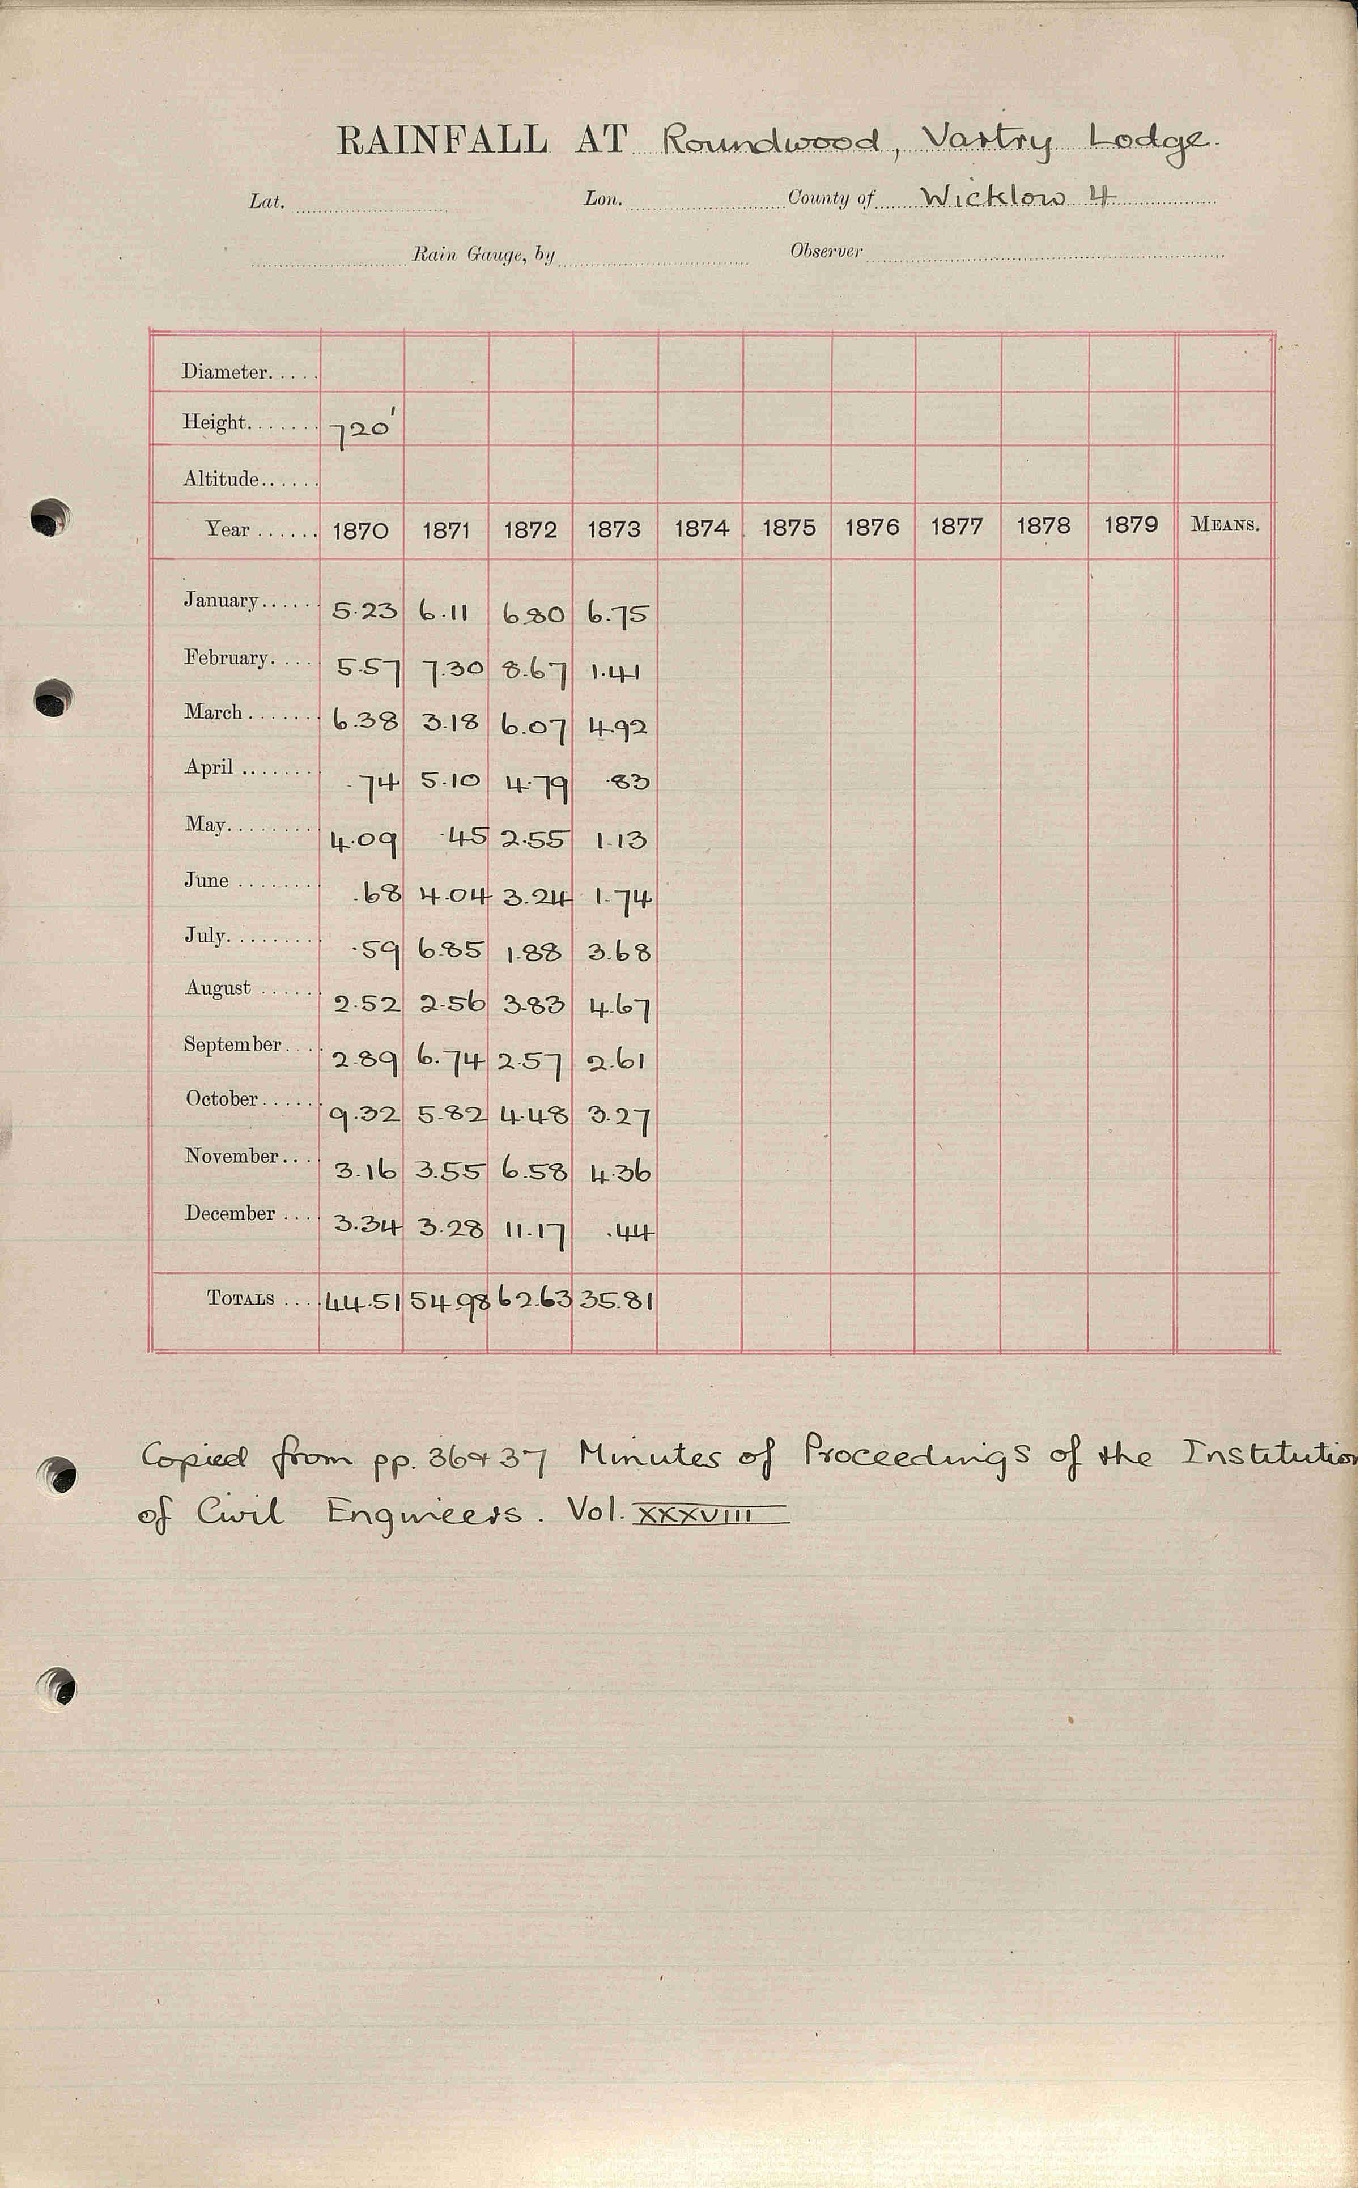 RAINFALL AT Roundwood, Vartry Lodge.
Lat. Lon. County of Wicklow 4
Rain Gauge, by Observer
Diameter.....
Height....... 720'
Altitude......
Year ...... 1870 1871 1872 1873 1874 1875 1876 1877 1878 1879 MEANS.
January...... 5.23 6.11 6.80 6.75
February.... 5.57 7.30 8.67 1.41
March....... 6.38 3.18 6.07 4.92
April ....... .74 5.10 4.79 .83
May......... 4.09 .45 2.55 1.13
June ........ .68 4.04 3.24 1.74
July......... .59 6.85 1.88 3.68
August ...... 2.52 2.56 3.83 4.67
September.... 2.89 6.74 2.57 2.61
October...... 9.32 5.82 4.48 3.27
November.... 3.16 3.55 6.58 4.36
December .... 3.34 3.28 11.17 .44
TOTALS .... 44.51 54.98 62.63 35.81
Copied from pp. 36 & 37 Minutes of Proceedings of the Institution
of Civil Engineers. Vol. XXXVIII